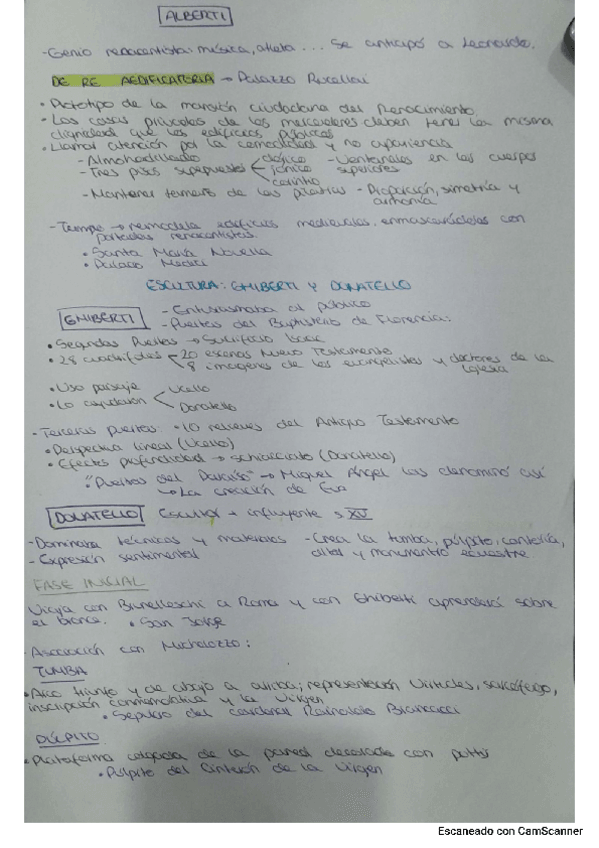 ALBERTI
-Genio renacentista: música, atleta... Se anticipó a Leonardo.
DE RE AEDIFICATORIA → Palazzo Rucellai
• Prototipo de la mansión ciudadana del Renacimiento
• Las casas privadas de los mercaderes deben tener la misma
dignidad que los edificios públicos
• Llamar atención por la comodidad y no apariencia
- Almohadillado
- Tres pisos superpuestos < dórico jónico corintio
- Ventanales en los cuerpos superiores
- Mantener tamaño de las pilastras - Proporción, simetría y armonía
- Tiempo → remodela edificios medievales, enmascarándolos con
portadas renacentistas.
• Santa María Novella
• Palacio Medici
ESCULTURA: GHIBERTI Y DONATELLO
GHIBERTI
- Entusiasmaba al público
- Puertas del Baptisterio de Florencia:
• Segundas Puertas → Sacrificio Isaac
• 28 cuadrifolios < 20 escenas Nuevo Testamento
8 imágenes de los evangelistas y doctores de la Iglesia
• Uso paisaje
• Lo ayudaron < Ucello
Donatello
- Terceras puertas: • 10 relieves del Antiguo Testamento
• Perspectiva lineal (Ucello)
• Efectos profundidad → schiacciato (Donatello)
"Puertas del Paraíso" → Miguel Ángel las denominó así
↳ La creación de Eva
DONATELLO Escultor + influyente s. XV
- Dominaba técnicas y materiales - Crea la tumba, púlpito, cantoría,
- Expresión sentimental altar y monumento ecuestre.
FASE INICIAL
Viaja con Brunelleschi a Roma y con Ghiberti aprenderá sobre
el bronce. • San Jorge
- Asociación con Michelozzo:
TUMBA
• Arco triunfo y de abajo a arriba; representación Virtudes, sarcófago,
inscripción conmemorativa y la Virgen
• Sepulcro del cardenal Rainaldo Brancacci
PÚLPITO
• Plataforma colgada de la pared decorada con putti
• Púlpito del Cinturón de la Virgen
Escaneado con CamScanner